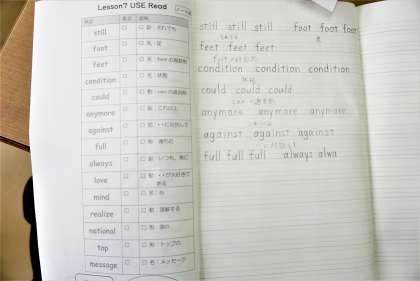 Lesson7 USE Read
still 副：それでも
foot 名：足
feet 名：footの複数形
condition 名：状態
could 動：canの過去形
anymore 副：これ以上
against 前：・・に対抗して
full 形：
always 副：いつも、常に
love 動：・・が大好きである
mind 名：心
realize 動：理解する
national 形：国の
top 形：トップの
message 名：メッセージ
still still still foot foot foot
feet feet feet
condition condition condition
could could could
anymore anymore anymore
against against against
full full full always alwa